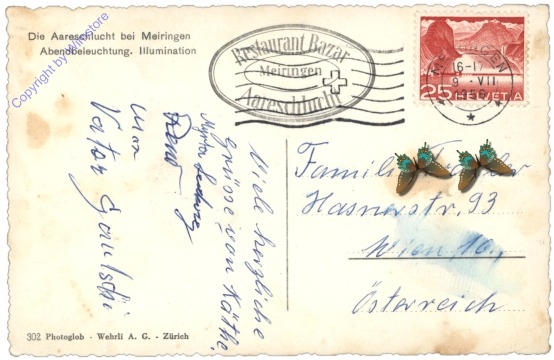 Die Aareschlucht bei Meiringen
Abendbeleuchtung. Illumination
Copyright by Winstore
Restaurant Bazar
Meiringen
Aareschlucht
MEIRINGEN
16-17
9. VII
1956
25 HELVETIA
Viele herzliche
Grüsse von Käthi
Myrta
René
und
Vater
Familie
Hasnerstr. 93
Wien 16.,
Österreich
302 Photoglob - Wehrli A. G. - Zürich